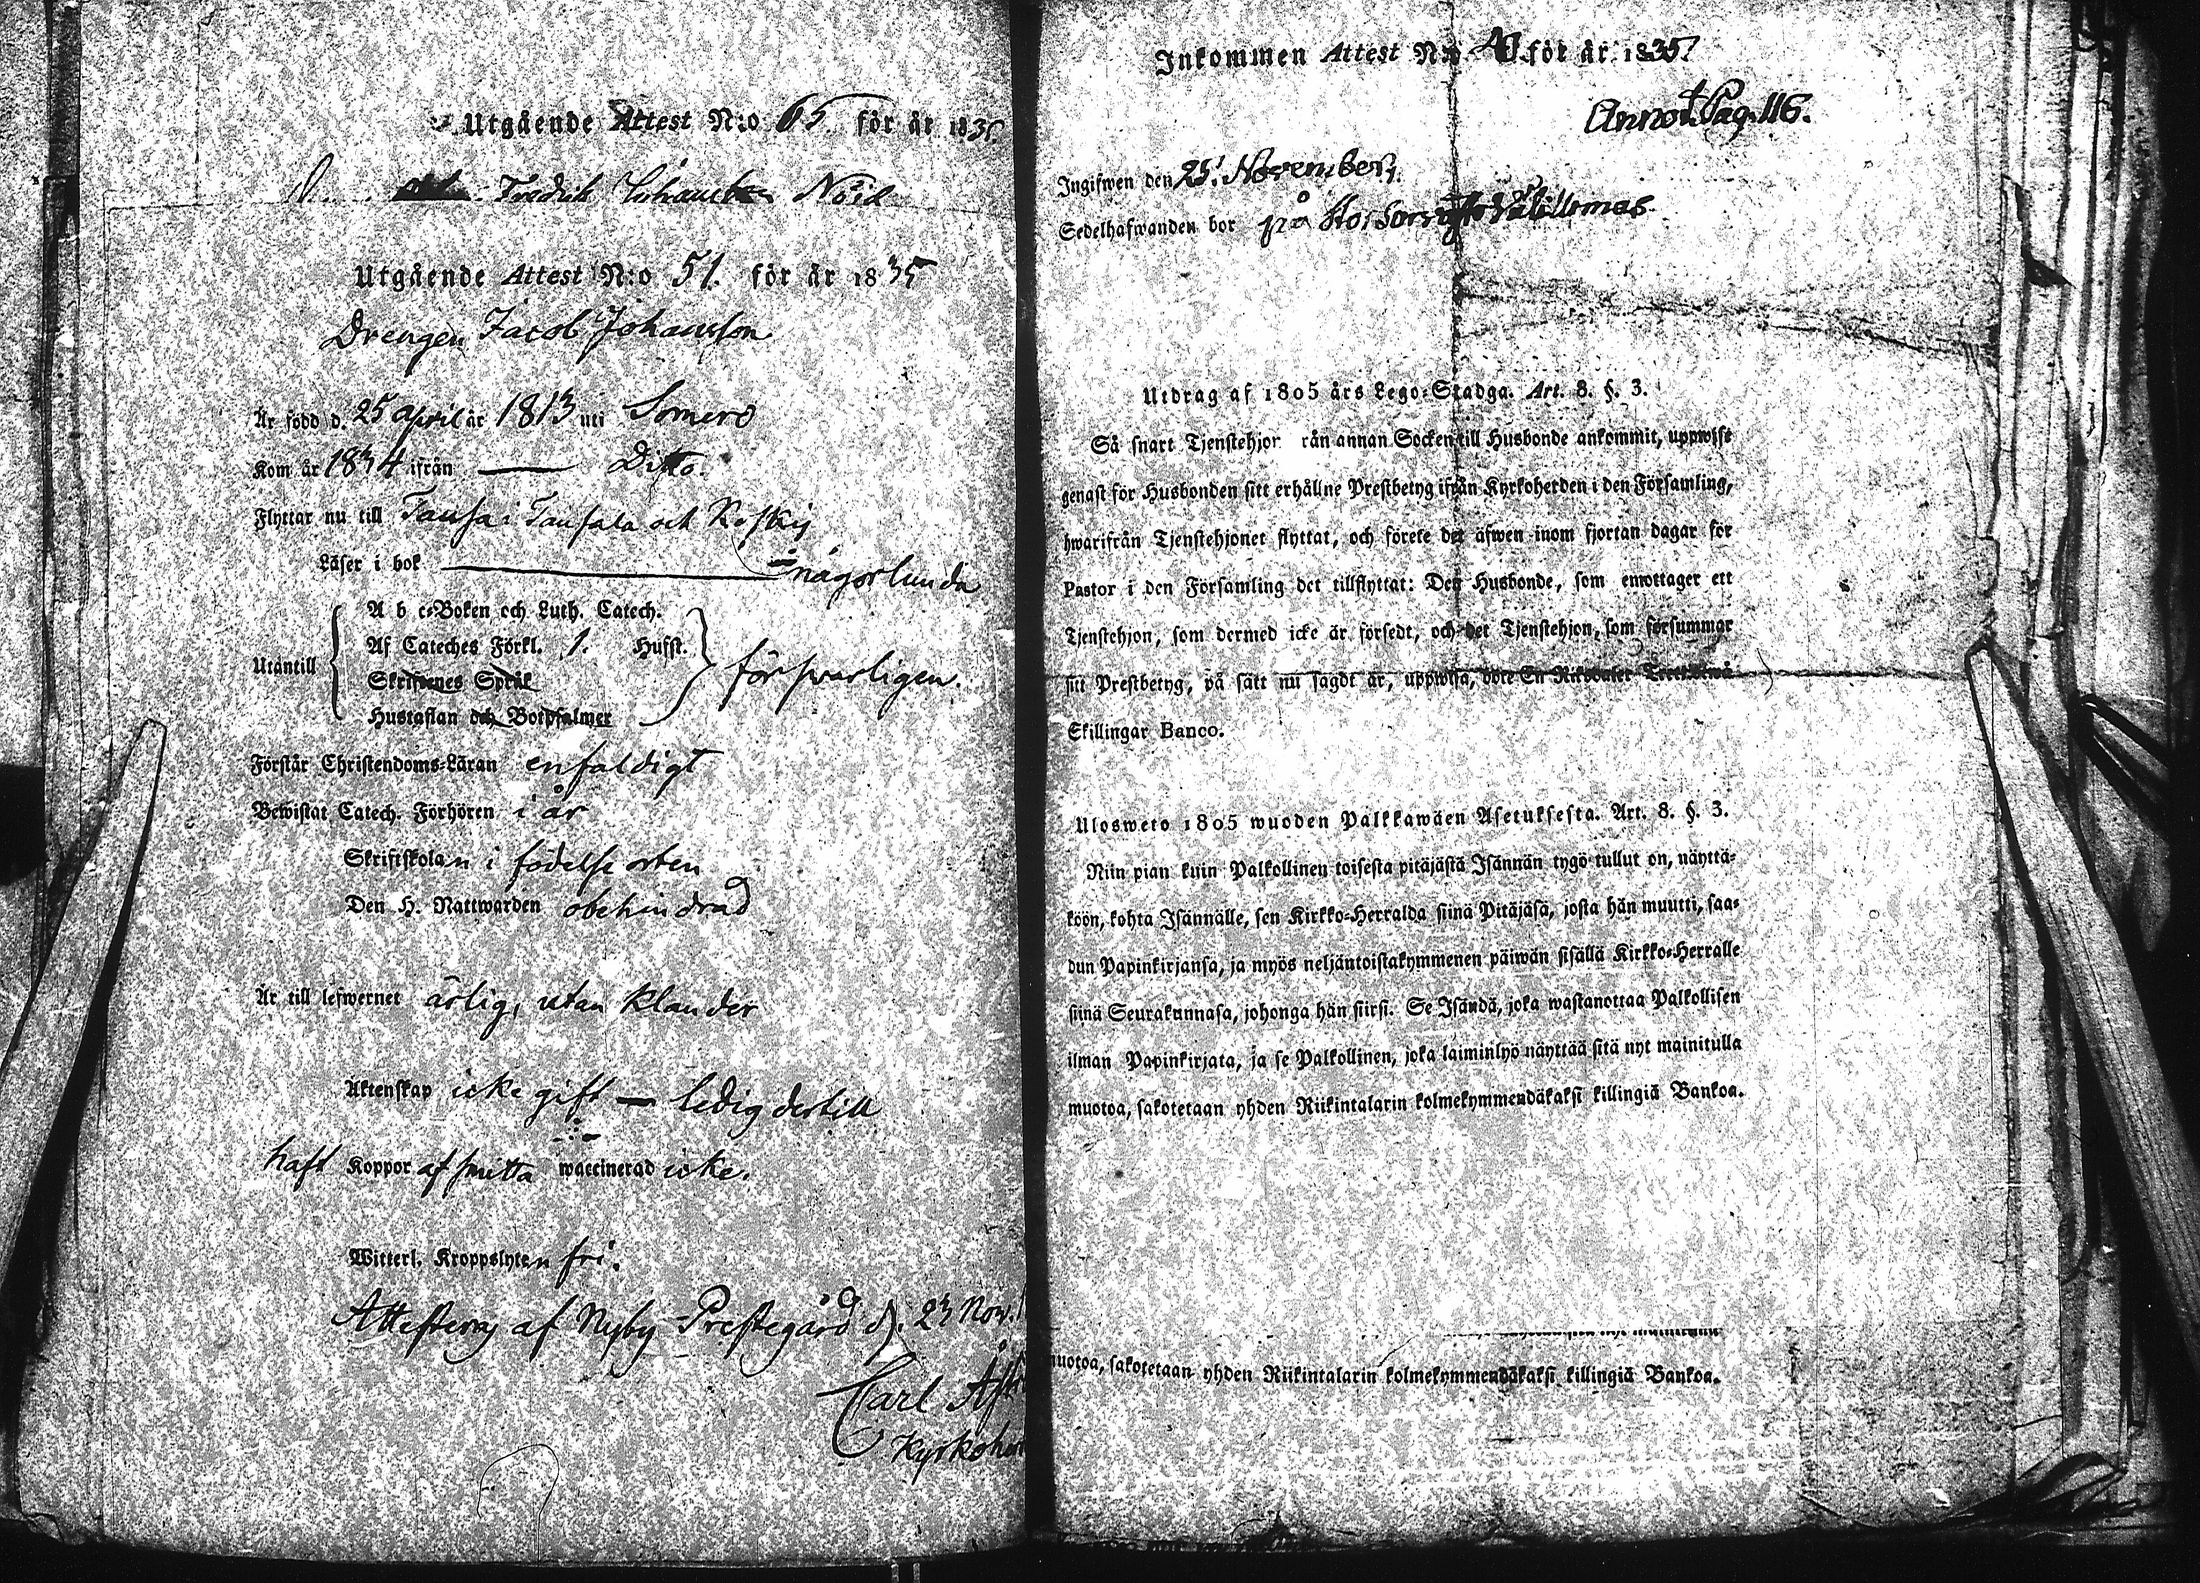 Utgående Attest N:o 65. för år 1835.
Fredrik Johansson Nöid
Utgående Attest N:o 51. för år 1835
Drengen Jacob Johansson
Är född d. 25 april år 1813 uti Somero
Kom år 1834 ifrån — Ditto.
Flyttar nu till i och Koskis
Läser i bok — någorlunda
A b c-Boken och Luth. Catech.
Af Cateches Förkl. 1. Hufst.
Utantill försvarligen.
Skriftenes Språk
Hustaflan och Botpsalmer
Förstår Christendoms-Läran enfaldigt
Bewistat Catech. Förhören i år
Skriftskolan i födelse orten
Den H. Nattwarden obehindrad
Är till lefwernet ärlig, utan klander
Äktenskap icke gift — ledig dertill
haft Koppor af smitta waccinerad icke.
Witterl. Kroppslyten fri.
Attesteras af Nyby Prestegård d. 23 Nov.
Carl
Kyrkoher
Inkommen Attest N:o för år 1835
Annot. Pag. 116.
Ingifwen den 25. November.
Sedelhafwanden bor på
Utdrag af 1805 års Lego-Stadga. Art. 8. §. 3.
Så snart Tjenstehjon rån annan Socken till Husbonde ankommit, uppwise
genast för Husbonden sitt erhållne Prestbetyg ifrån Kyrkoherden i den Församling,
hwarifrån Tjenstehjonet flyttat, och förete det äfwen inom fjortan dagar för
Pastor i den Församling det tillflyttat: Den Husbonde, som emottager ett
Tjenstehjon, som dermed icke är försedt, och det Tjenstehjon, som försummar
sitt Prestbetyg, på sätt nu sagdt är, uppwisa, böte En Riksdaler Trettiotwå
Skillingar Banco.
Ulosweto 1805 wuoden Palkkawäen Asetuksesta. Art. 8. §. 3.
Niin pian kuin Palkollinen toisesta pitäjästä Isännän tygö tullut on, näyttä-
köön, kohta Isännälle, sen Kirkko-Herralda siinä Pitäjäsä, josta hän muutti, saa-
dun Papinkirjansa, ja myös neljäntoistakymmenen päiwän sisällä Kirkko-Herralle
siinä Seurakunnasa, johonga hän siirsi. Se Isändä, joka wastanottaa Palkollisen
ilman Papinkirjata, ja se Palkollinen, joka laiminlyö näyttää sitä nyt mainitulla
muotoa, sakotetaan yhden Riikintalarin kolmekymmendäkaksi killingiä Bankoa.
muotoa, sakotetaan yhden Riikintalarin kolmekymmendäkaksi killingiä Bankoa.